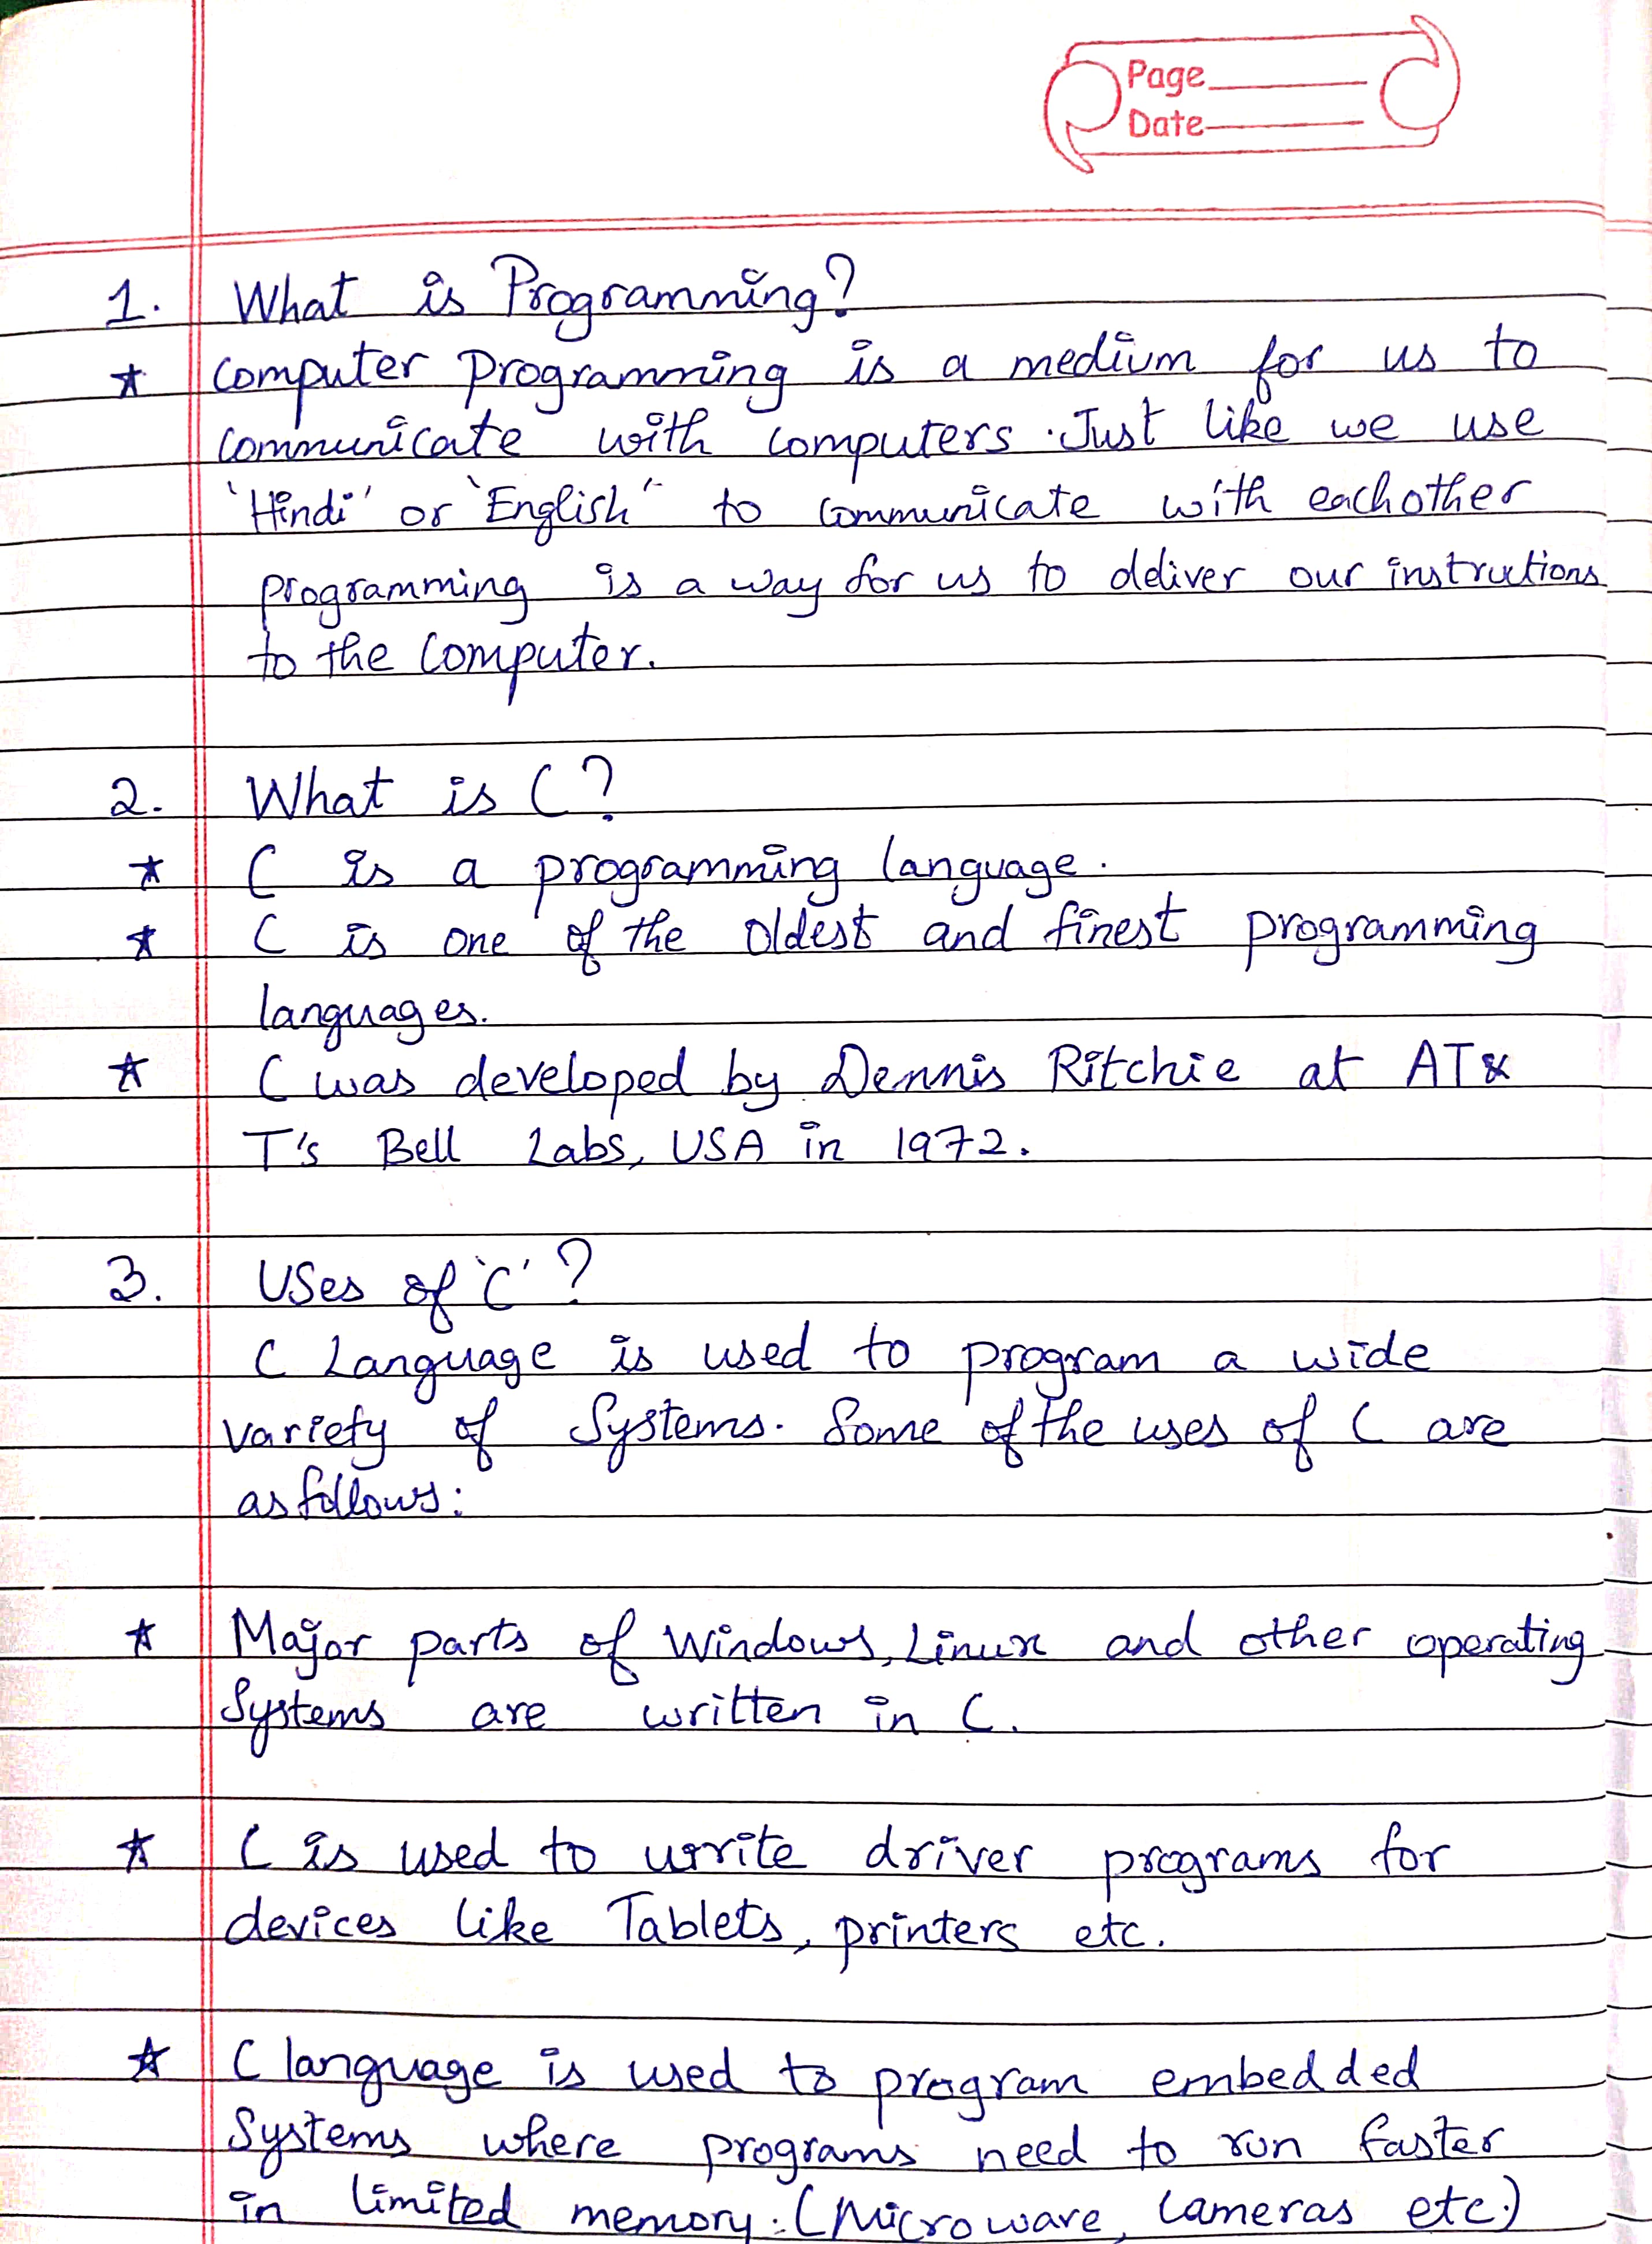 Page
Date
1. What is Programming?
* Computer Programming is a medium for us to
communicate with computers. Just like we use
'Hindi' or 'English" to communicate with eachother
programming is a way for us to deliver our instructions
to the computer.
2. What is C?
* C is a programming language.
* C is one of the oldest and finest programming
languages.
* C was developed by Dennis Ritchie at AT&
T's Bell Labs, USA in 1972.
3. Uses of 'C'?
C Language is used to program a wide
variety of Systems. Some of the uses of C are
as follows:
* Major parts of Windows, Linux and other operating
Systems are written in C.
* C is used to write driver programs for
devices like Tablets, printers etc.
* C language is used to program embedded
Systems where programs need to run faster
in limited memory. (Microware, Cameras etc.)